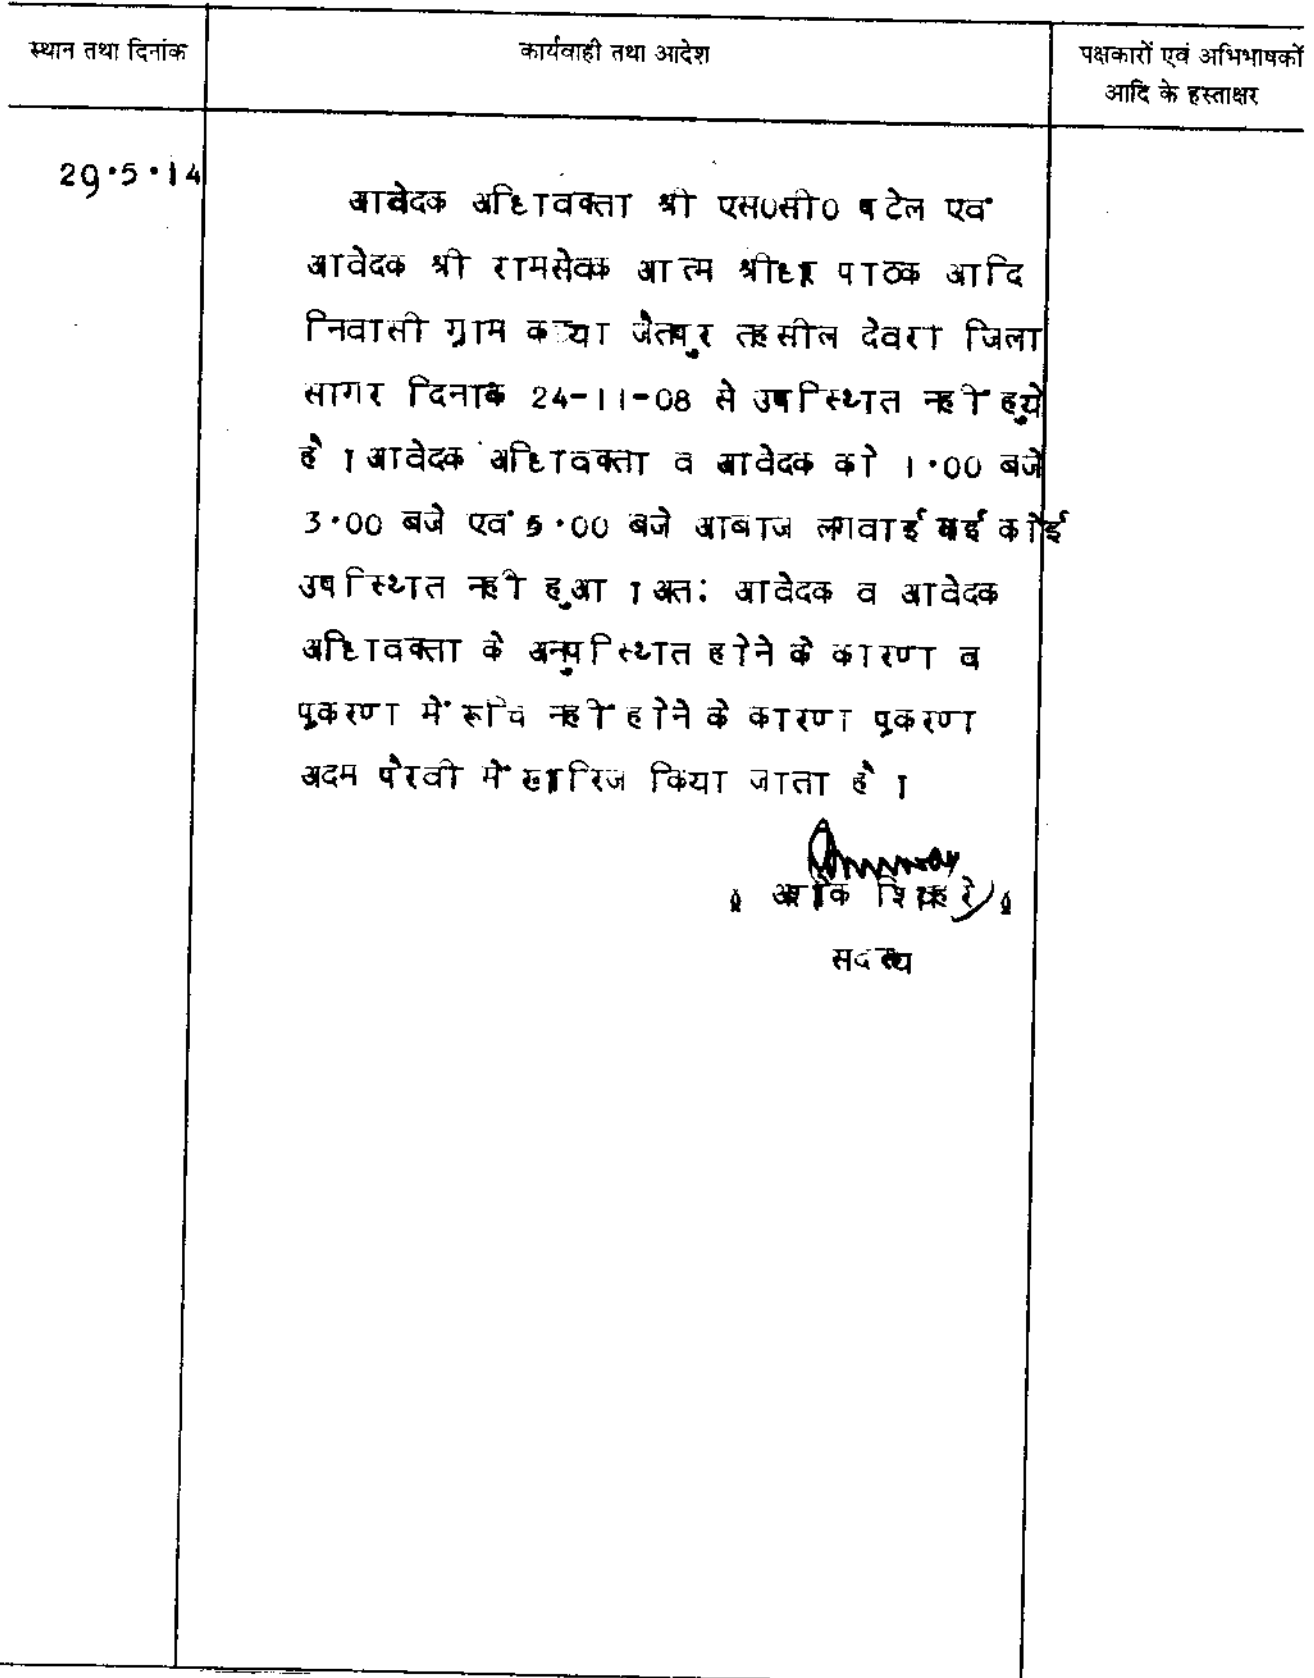 स्थान तथा दिनांक
कार्यवाही तथा आदेश
पक्षकारों एवं अभिभाषकों
आदि के हस्ताक्षर
29.5.14
आवेदक अधिवक्ता श्री एस0सी0 पटेल एवं
आवेदक श्री रामसेवक आत्म श्रीधर पाठक आदि
निवासी ग्राम जैतपुर तहसील देवरी जिला
सागर दिनांक 24-11-08 से उपस्थित नहीं हुये
है । आवेदक अधिवक्ता व आवेदक को 1.00 बजे
3.00 बजे एवं 5.00 बजे आबाज लगवाई गई कोई
उपस्थित नही हुआ । अतः आवेदक व आवेदक
अधिवक्ता के अनुपस्थित होने के कारण व
प्रकरण में रूचि नहीं होने के कारण प्रकरण
अदम पैरवी में खारिज किया जाता है ।
सदस्य